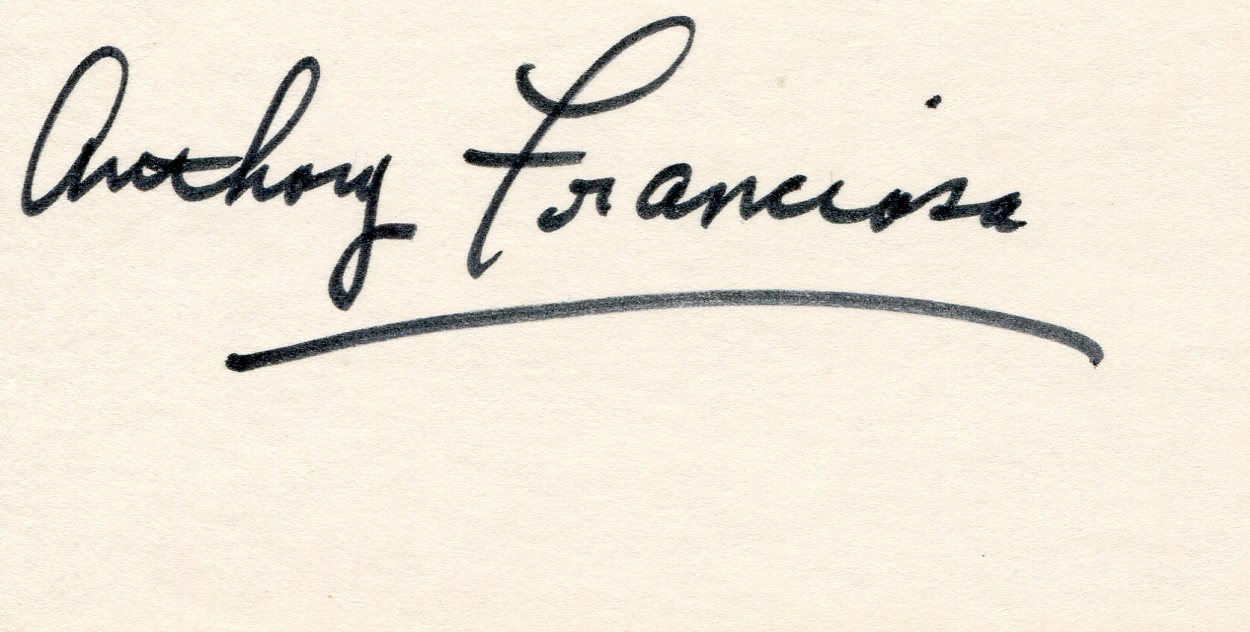 Anthony Franciosa